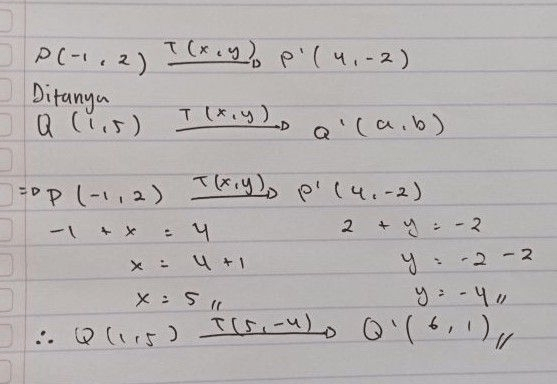 P(-1, 2) T(x,y)→ P'(4,-2)
Ditanya
Q (1,5) T(x,y)→ Q'(a,b)
⇒ P (-1,2) T(x,y)→ P'(4,-2)
-1 + x = 4 2 + y = -2
x = 4 + 1 y = -2 - 2
x = 5 // y = -4 //
∴ Q (1,5) T(5,-4)→ Q'(6,1) //